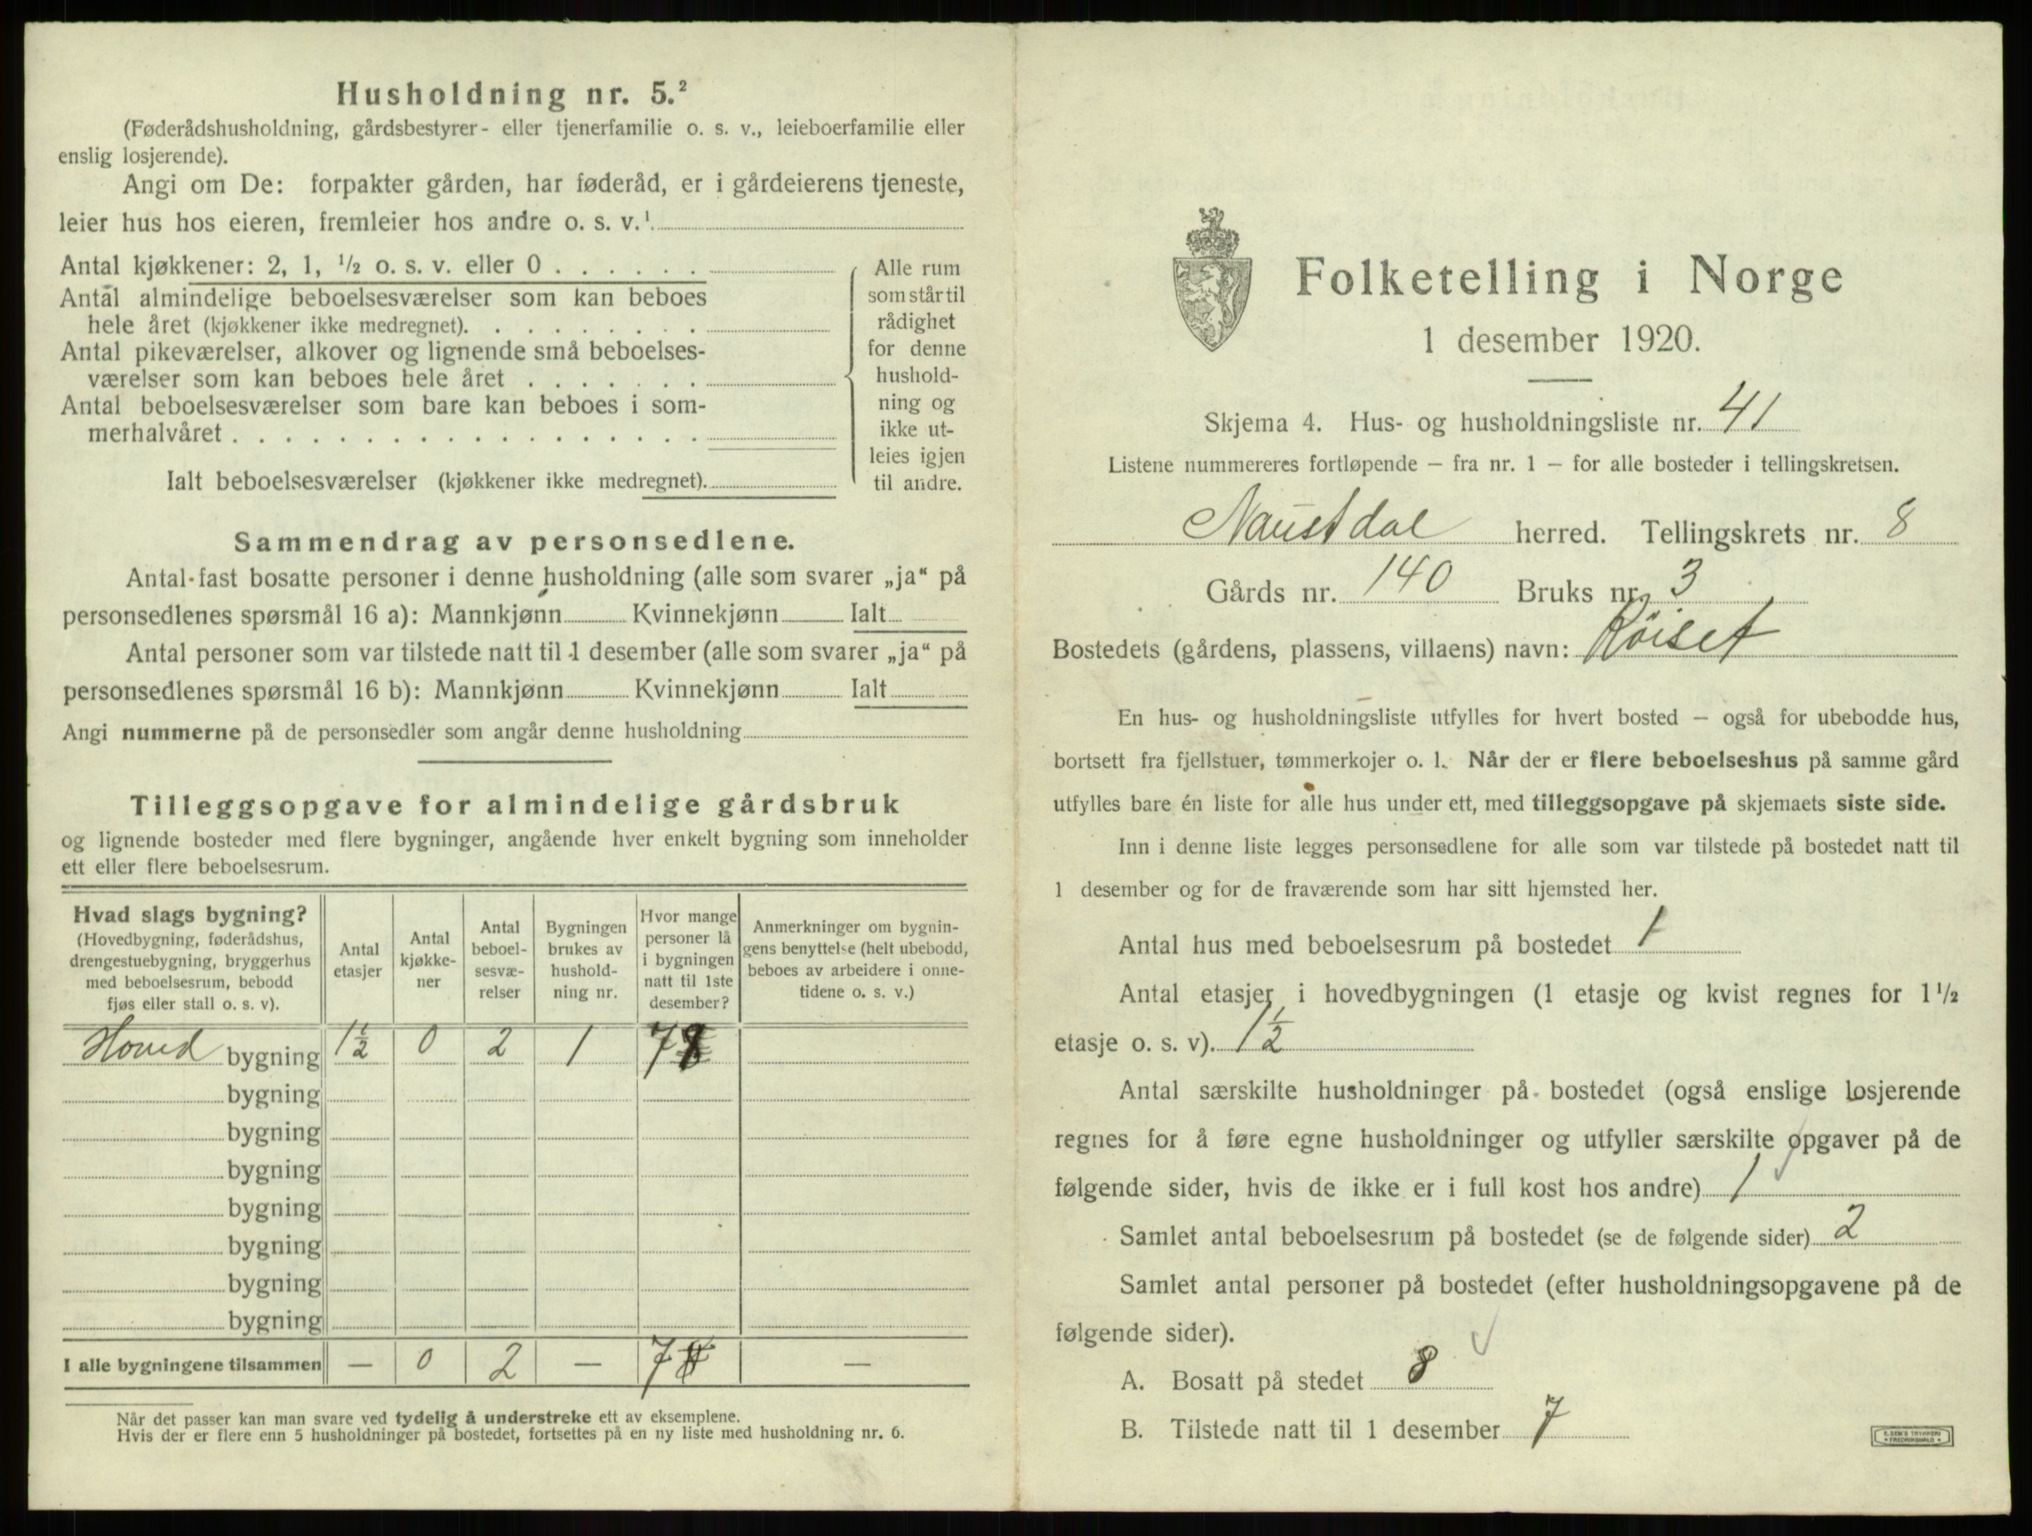 Husholdning nr. 5.²
(Føderådshusholdning, gårdsbestyrer- eller tjenerfamilie o. s. v., leieboerfamilie eller
enslig losjerende).
Angi om De: forpakter gården, har føderåd, er i gårdeierens tjeneste,
leier hus hos eieren, fremleier hos andre o. s. v.¹
Antal kjøkkener: 2, 1, ½ o. s. v. eller 0 . . . . . .
Antal almindelige beboelsesværelser som kan beboes
hele året (kjøkkener ikke medregnet). . . . . . . . .
Antal pikeværelser, alkover og lignende små beboelses-
værelser som kan beboes hele året . . . . . . .
Antal beboelsesværelser som bare kan beboes i som-
merhalvåret . . . . . . . . . . . . . . . . . .
Ialt beboelsesværelser (kjøkkener ikke medregnet).
Alle rum
som står til
rådighet
for denne
hushold-
ning og
ikke ut-
leies igjen
til andre.
Sammendrag av personsedlene.
Antal fast bosatte personer i denne husholdning (alle som svarer „ja“ på
personsedlenes spørsmål 16 a): Mannkjønn Kvinnekjønn Ialt
Antal personer som var tilstede natt til 1 desember (alle som svarer „ja“ på
personsedlenes spørsmål 16 b): Mannkjønn Kvinnekjønn Ialt
Angi nummerne på de personsedler som angår denne husholdning
Tilleggsopgave for almindelige gårdsbruk
og lignende bosteder med flere bygninger, angående hver enkelt bygning som inneholder
ett eller flere beboelsesrum.
Hvad slags bygning?
(Hovedbygning, føderådshus,
drengestuebygning, bryggerhus
med beboelsesrum, bebodd
fjøs eller stall o. s. v).
Antal
etasjer
Antal
kjøkke-
ner
Antal
beboel-
sesvæ-
relser
Bygningen
brukes av
hushold-
ning nr.
Hvor mange
personer lå
i bygningen
natt til 1ste
desember?
Anmerkninger om bygnin-
gens benyttelse (helt ubebodd,
beboes av arbeidere i onne-
tidene o. s. v.)
Hoved bygning 1½ 0 2 1 7 8
bygning
bygning
bygning
bygning
bygning
bygning
bygning
I alle bygningene tilsammen — 0 2 — 7 8 —
Når det passer kan man svare ved tydelig å understreke ett av eksemplene.
Hvis der er flere enn 5 husholdninger på bostedet, fortsettes på en ny liste med husholdning nr. 6.
Folketelling i Norge
1 desember 1920.
Skjema 4. Hus- og husholdningsliste nr. 41
Listene nummereres fortløpende — fra nr. 1 — for alle bosteder i tellingskretsen.
Naustdal herred. Tellingskrets nr. 8
Gårds nr. 140 Bruks nr. 3
Bostedets (gårdens, plassens, villaens) navn: Röiset
En hus- og husholdningsliste utfylles for hvert bosted — også for ubebodde hus,
bortsett fra fjellstuer, tømmerkojer o. l. Når der er flere beboelseshus på samme gård
utfylles bare én liste for alle hus under ett, med tilleggsopgave på skjemaets siste side.
Inn i denne liste legges personsedlene for alle som var tilstede på bostedet natt til
1 desember og for de fraværende som har sitt hjemsted her.
Antal hus med beboelsesrum på bostedet 1
Antal etasjer i hovedbygningen (1 etasje og kvist regnes for 1½
etasje o. s. v). 1½
Antal særskilte husholdninger på bostedet (også enslige losjerende
regnes for å føre egne husholdninger og utfyller særskilte opgaver på de
følgende sider, hvis de ikke er i full kost hos andre) 1
Samlet antal beboelsesrum på bostedet (se de følgende sider) 2
Samlet antal personer på bostedet (efter husholdningsopgavene på de
følgende sider).
A. Bosatt på stedet 8
B. Tilstede natt til 1 desember 7